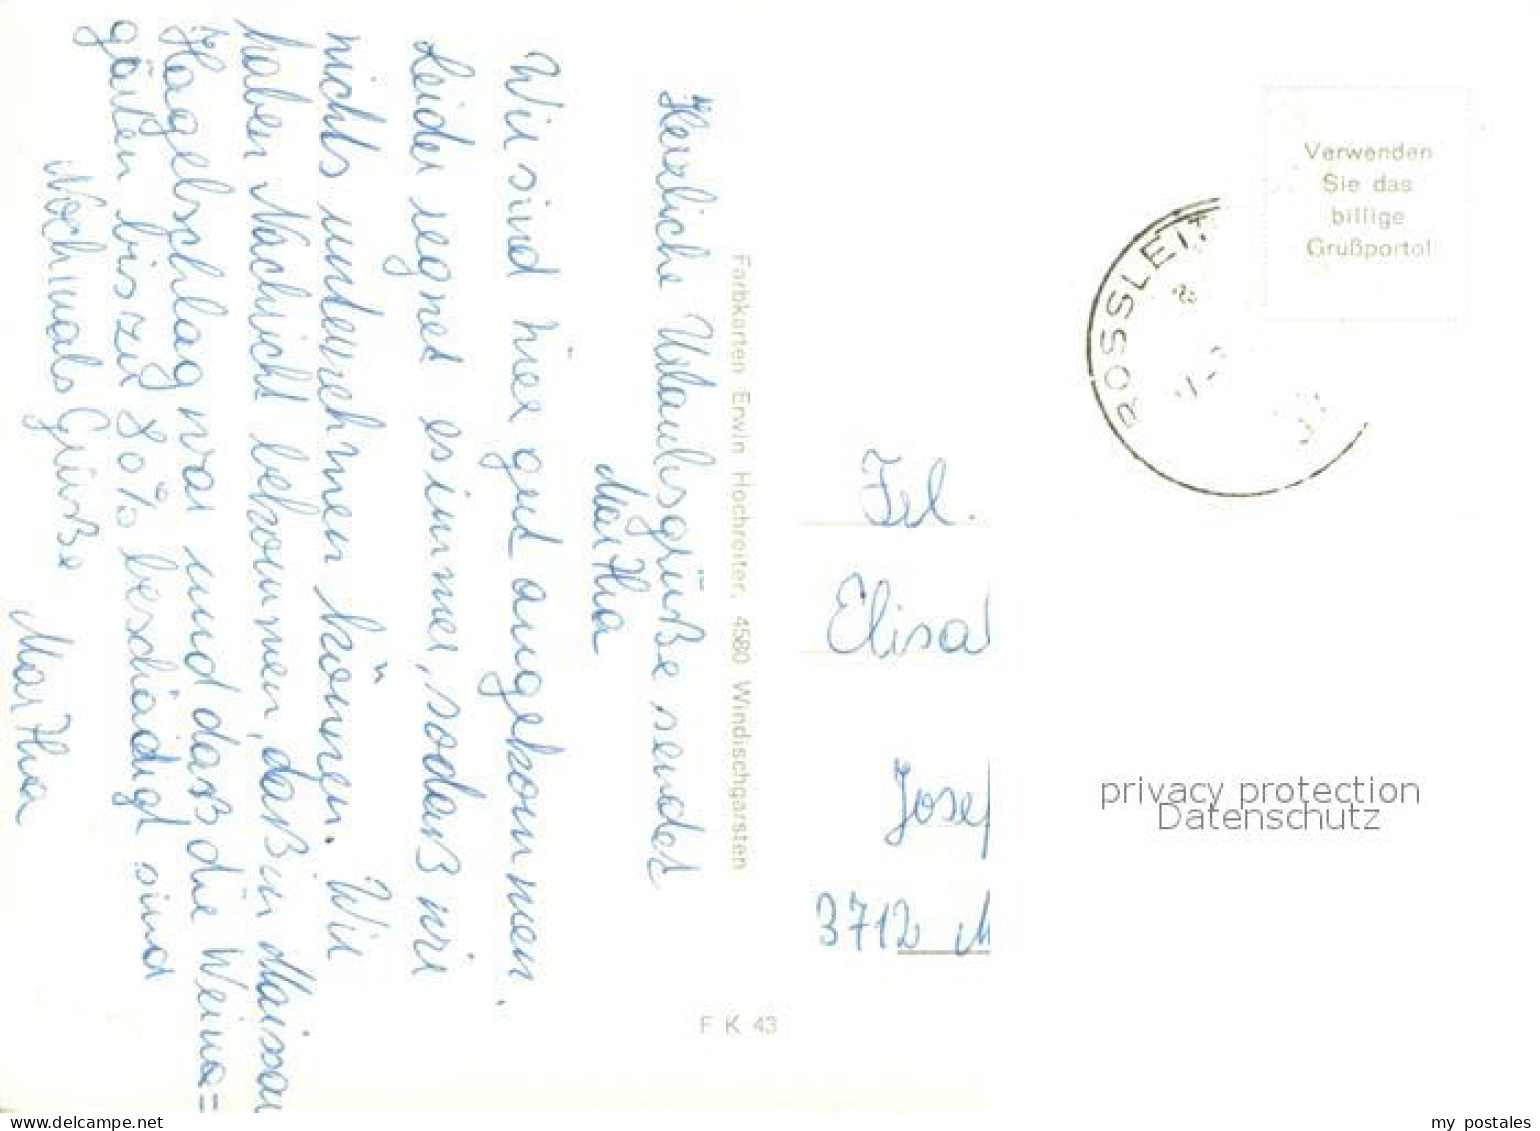 Herzliche Urlaubsgrüße sendet
Martha
Wir sind hier gut angekommen.
Leider regnet es immer, sodaß wir
nichts unternehmen können. Wir
haben Nachricht bekommen, daß in Maissau
Hagelschlag war und daß die Wein=
gärten bis zu 80% beschädigt sind
Nochmals Grüße
Martha
Farbkarten Erwin Hochreiter, 4580 Windischgarsten
F K 43
Verwenden
Sie das
billige
Grußporto!
ROSSLEI
Frl.
Elisa
Josef
3712 M
privacy protection
Datenschutz
www.delcampe.net
my_postales